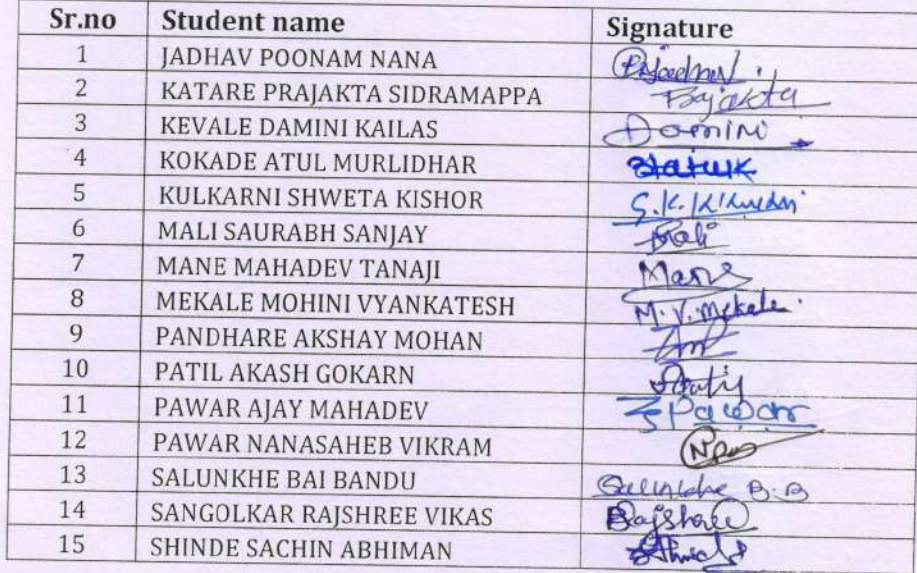 Sr.no Student name Signature
1 JADHAV POONAM NANA
2 KATARE PRAJAKTA SIDRAMAPPA Prajakta
3 KEVALE DAMINI KAILAS Damini
4 KOKADE ATUL MURLIDHAR
5 KULKARNI SHWETA KISHOR S.K.
6 MALI SAURABH SANJAY Mali
7 MANE MAHADEV TANAJI Mane
8 MEKALE MOHINI VYANKATESH M.V.Mekale.
9 PANDHARE AKSHAY MOHAN
10 PATIL AKASH GOKARN
11 PAWAR AJAY MAHADEV Pawar
12 PAWAR NANASAHEB VIKRAM
13 SALUNKHE BAI BANDU Salunkhe B.B
14 SANGOLKAR RAJSHREE VIKAS Rajshree
15 SHINDE SACHIN ABHIMAN